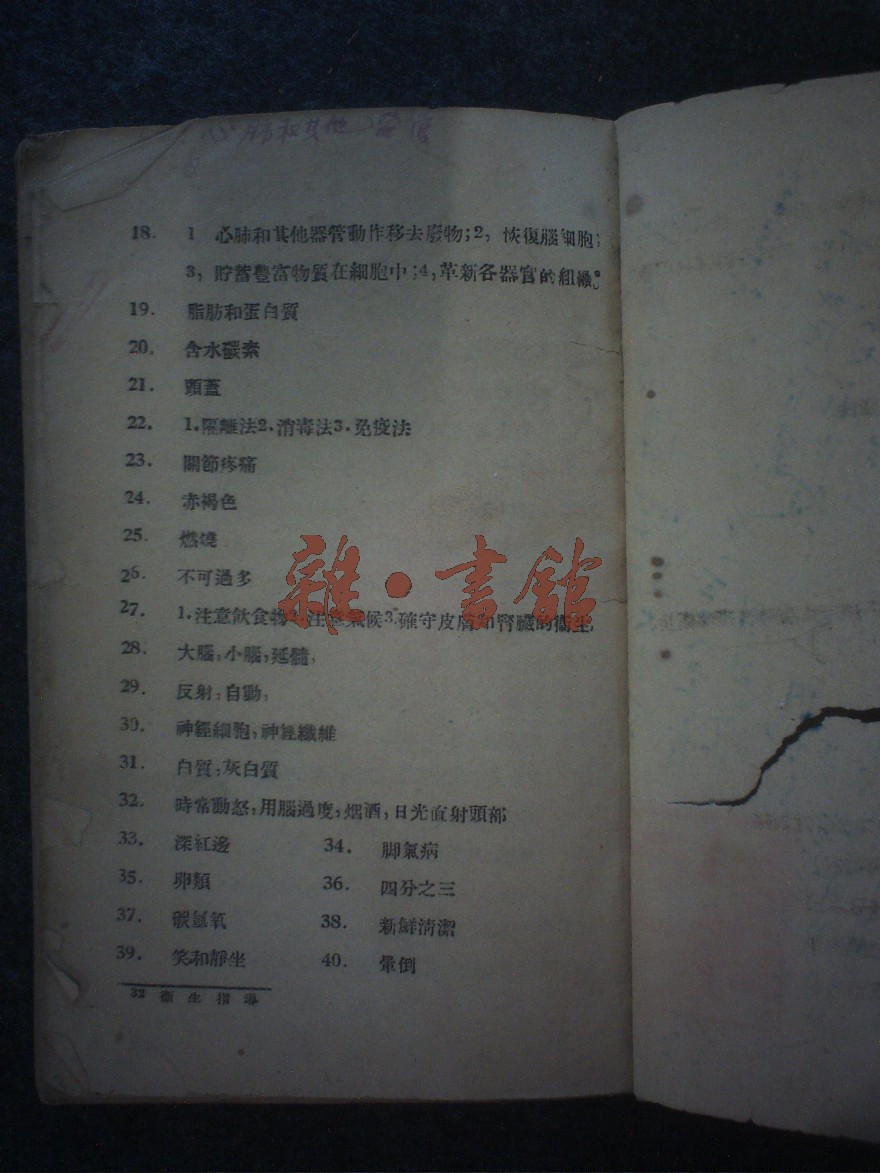 心肺和其他器管
18. 1 心肺和其他器管動作移去廢物;2, 恢復腦細胞;
3, 貯蓄豐富物質在細胞中;4,革新各器官的組織。
19. 脂肪和蛋白質
20. 含水碳素
21. 頭蓋
22. 1.隔離法2.消毒法3.免疫法
23. 關節疼痛
24. 赤褐色
25. 燃燒
26. 不可過多
27. 1.注意飲食物2.注意氣候3.確守皮膚和腎臟的衛生,
28. 大腦,小腦,延髓,
29. 反射,自動,
30. 神經細胞,神經纖維
31. 白質,灰白質
32. 時常動怒,用腦過度,烟酒,日光直射頭部
33. 深紅邊 34. 脚氣病
35. 卵類 36. 四分之三
37. 碳氫氧 38. 新鮮清潔
39. 笑和靜坐 40. 暈倒
32 衛生指導
雜·書館